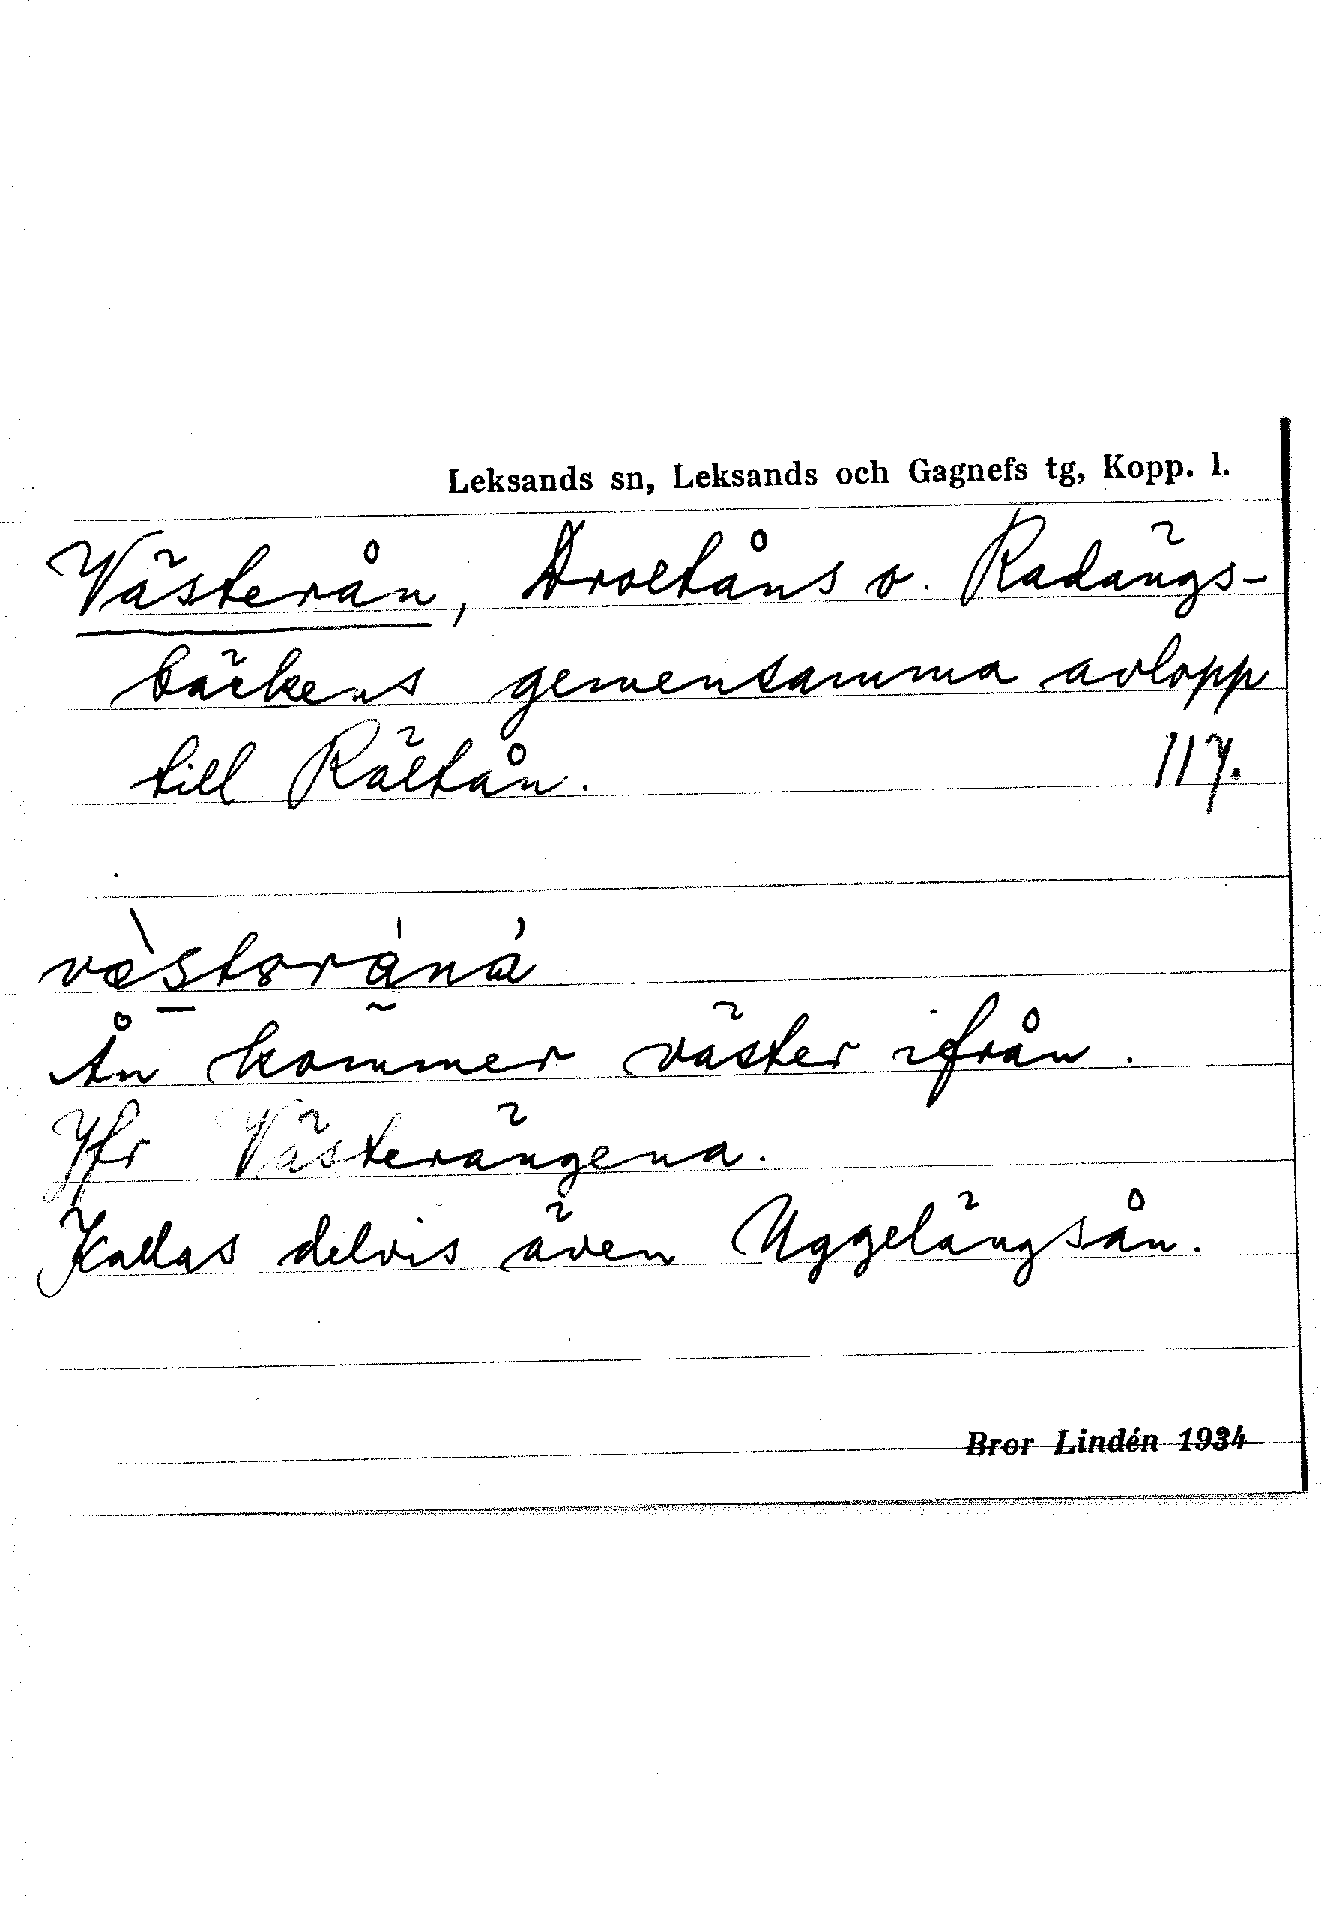 Leksands sn, Leksands och Gagnefs tg, Kopp. l.
Västerån, Droltåns o. Radängs-
bäckens gemensamma avlopp
till Rältån. 117.
Ån kommer väster ifrån.
Jfr Västerängena.
Kallas delvis även Uggelängsån.
Bror Lindén 1934